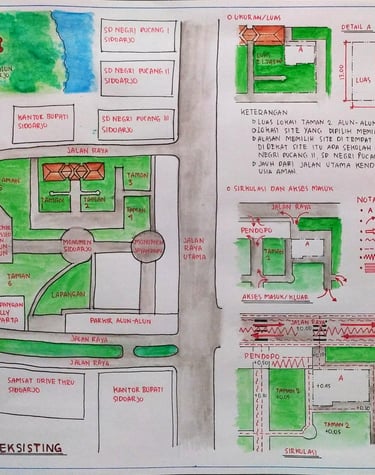 SD NEGRI PUCANG I
SIDOARJO
SD NEGRI PUCANG II
SIDOARJO
SD NEGRI PUCANG III
SIDOARJO
KANTOR BUPATI
SIDOARJO
JALAN RAYA
TAMAN
TAMAN
2
TAMAN
3
TAMAN
4
MONUMEN
SIDOARJO
MONUMEN
JALAN
RAYA
UTAMA
TAMAN
6
LAPANGAN
PARKIR ALUN-ALUN
JALAN RAYA
JALAN RAYA
SAMSAT DRIVE THRU
SIDOARJO
KANTOR BUPATI
SIDOARJO
EKSISTING
O UKURAN/LUAS
DETAIL A
LUAS
A
13.00
KETERANGAN
LUAS LOKASI TAMAN 2 ALUN-ALUN
LOKASI SITE YANG DIPILIH
ALASAN MEMILIH SITE DI TEMPAT
DI DEKAT SITE ITU ADA SEKOLAH
NEGRI PUCANG II, SD NEGRI PUCANG
JAUH DARI JALAN UTAMA
USIA AMAN.
O SIRKULASI DAN AKSES MASUK
JALAN RAYA
PENDOPO
TAMAN
2
A
AKSES MASUK/KLUAR
JALAN RAYA
±0.00
PENDOPO
+0.50
A
TAMAN 2
+0.05
TAMAN 2
+0.05
SIRKULASI